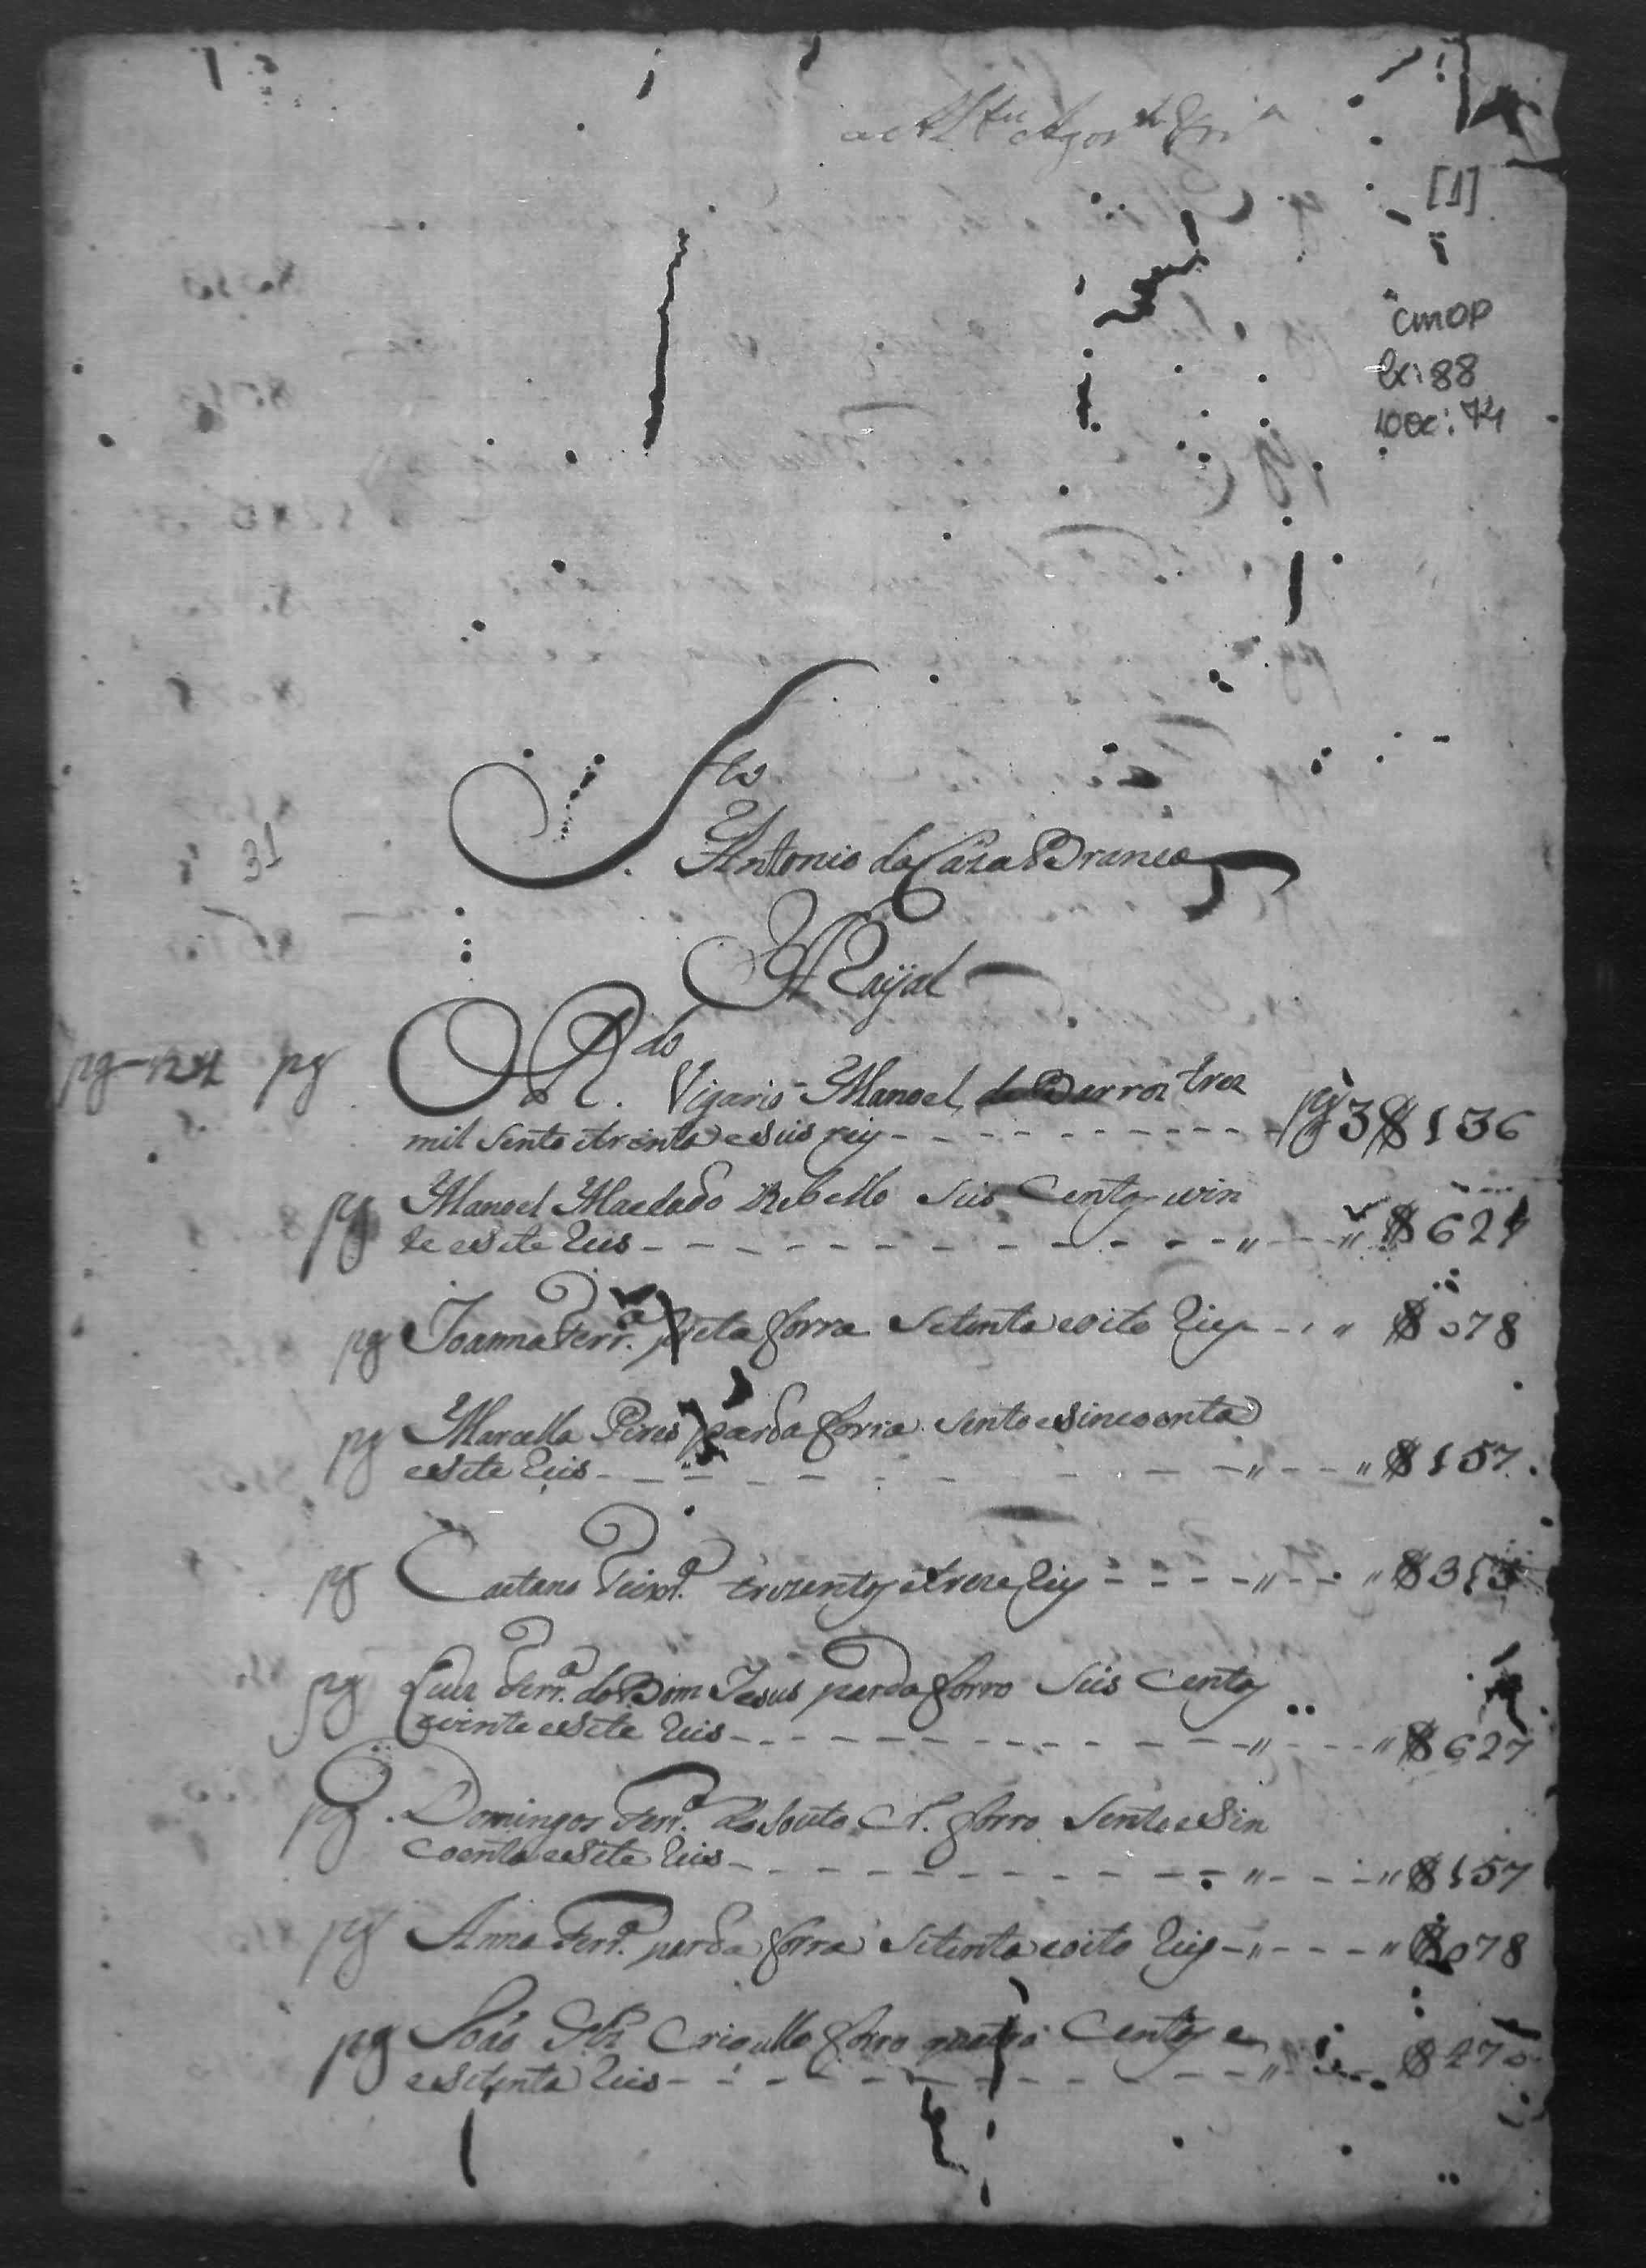 [1]
CMOP
Cx: 88
DOC: 74
31
Sto.
Antonio da Caza Branca
ARayal
pg pg
O R.do Vigario Manoel de Barros trez
mil Sento etrinta eseis reis pg 3$136
pg Manoel Machado Rebello Seis Centos evin
te esete Reis $627
pg Joanna Ferr.a preta forra Setenta eoito Reis $078
pg Marcella Pires parda forra Sento esincoenta
esete Reis $157
pg Caetano Teix.ra trezentos etreze Reis $313
pg Luis Ferr.a do Bom Jesus pardo forro Seis Centos
evinte esete Reis $627
pg Domingos Ferr.a do Souto C. forro Sento eSin
coenta esete Reis $157
pg Anna Ferr.a parda forra Setenta eoito Reis $078
pg João Crioullo forro quatro Centos e
esetenta Reis $470